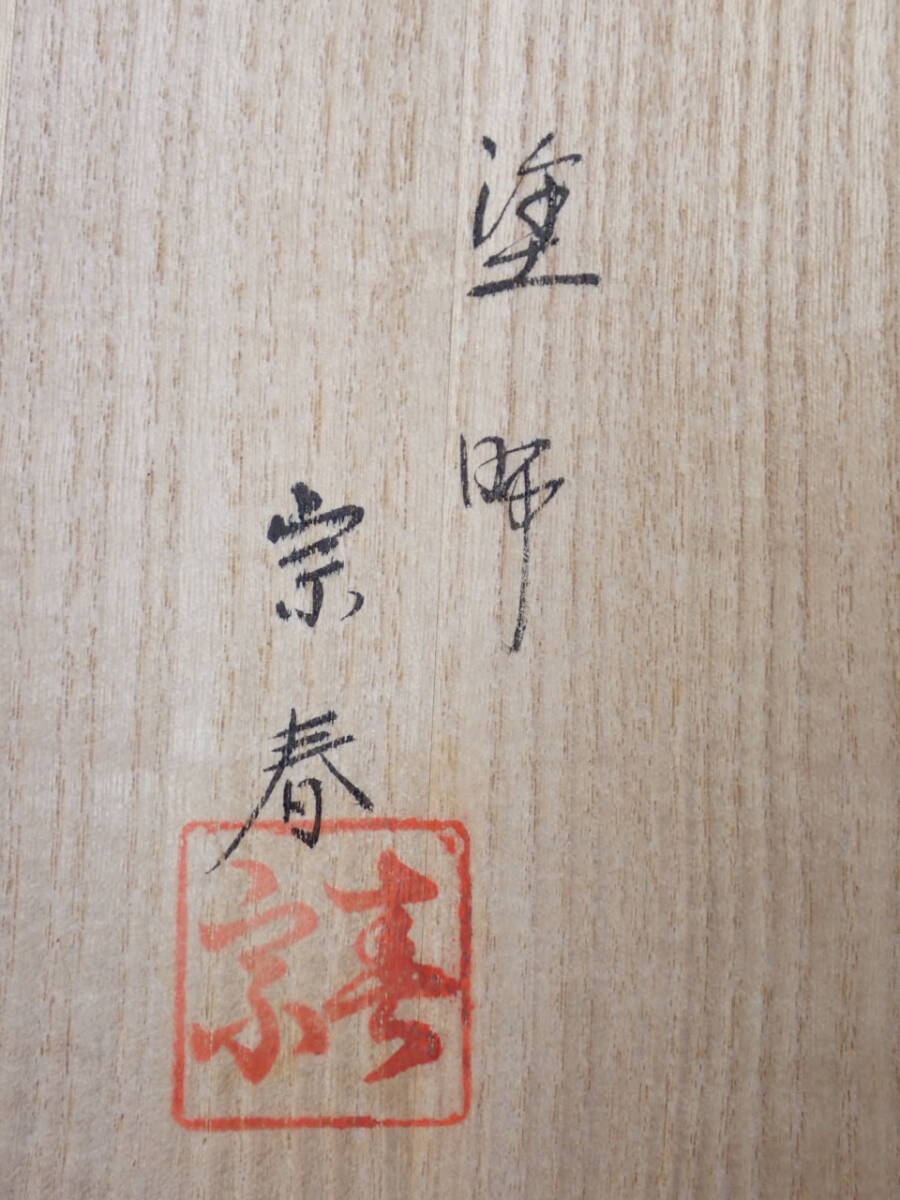 塗師
宗春
宗